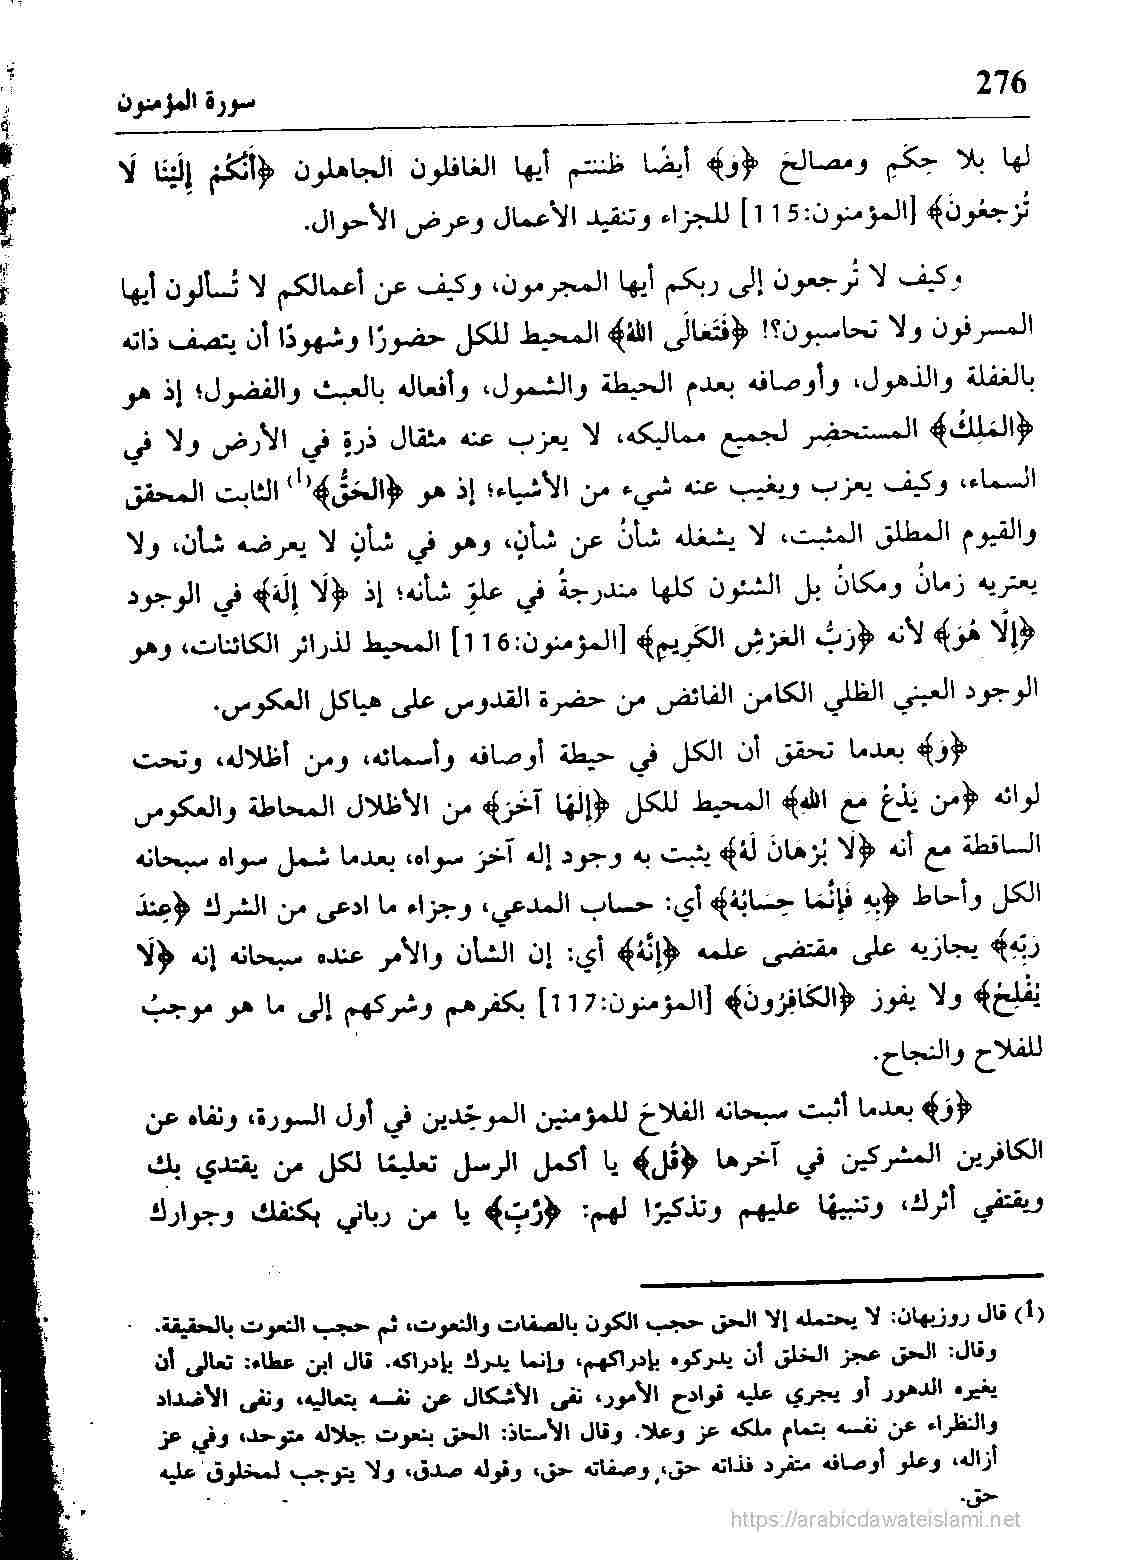 276
سورة المؤمنون
لها بلا حِكَمٍ ومصالحَ ﴿وَ﴾ أيضًا ظننتم أيها الغافلون الجاهلون ﴿أَنَّكُمْ إِلَيْنَا لَا
تُرْجَعُونَ﴾ [المؤمنون:115] للجزاء وتنقيد الأعمال وعرض الأحوال.
وكيف لا تُرجعون إلى ربكم أيها المجرمون، وكيف عن أعمالكم لا تُسألون أيها
المسرفون ولا تحاسبون؟! ﴿فَتَعَالَى اللهُ﴾ المحيط للكل حضورًا وشهودًا أن يتصف ذاته
بالغفلة والذهول، وأوصافه بعدم الحيطة والشمول، وأفعاله بالعبث والفضول؛ إذ هو
﴿المَلِكُ﴾ المستحضِر لجميع مماليكه، لا يعزب عنه مثقال ذرةٍ في الأرض ولا في
السماء، وكيف يعزب ويغيب عنه شيء من الأشياء؛ إذ هو ﴿الحَقُّ﴾(1) الثابت المحقق
والقيوم المطلق المثبت، لا يشغله شأنُ عن شأنٍ، وهو في شأنٍ لا يعرضه شأن، ولا
يعتريه زمانُ ومكانُ بل الشئون كلها مندرجةُ في علوِّ شأنه؛ إذ ﴿لَا إِلَهَ﴾ في الوجود
﴿إِلَّا هُوَ﴾ لأنه ﴿رَبُّ العَرْشِ الكَرِيمِ﴾ [المؤمنون:116] المحيط لذرائر الكائنات، وهو
الوجود العيني الظلي الكامن الفائض من حضرة القدوس على هياكل العكوس.
﴿وَ﴾ بعدما تحقق أن الكل في حيطة أوصافه وأسمائه، ومن أظلاله، وتحت
لوائه ﴿من يَدْعُ مع اللهِ﴾ المحيط للكل ﴿إِلَهًا آخَرَ﴾ من الأظلال المحاطة والعكوس
الساقطة مع أنه ﴿لَا بُرْهَانَ لَهُ﴾ يثبت به وجود إله آخرَ سواه، بعدما شمل سواه سبحانه
الكل وأحاط ﴿بِهِ فَإِنَّمَا حِسَابُهُ﴾ أي: حساب المدعي، وجزاء ما ادعى من الشرك ﴿عِندَ
رَبِّهِ﴾ يجازيه على مقتضى علمه ﴿إِنَّهُ﴾ أي: إن الشأن والأمر عنده سبحانه إنه ﴿لَا
يُفْلِحُ﴾ ولا يفوز ﴿الكَافِرُونَ﴾ [المؤمنون:117] بكفرهم وشركهم إلى ما هو موجبُ
للفلاح والنجاح.
﴿وَ﴾ بعدما أثبت سبحانه الفلاحَ للمؤمنين الموحِّدين في أول السورة، ونفاه عن
الكافرين المشركين في آخرها ﴿قُل﴾ يا أكمل الرسل تعليمًا لكل من يقتدي بك
ويقتفي أثرك، وتنبيهًا عليهم وتذكيرًا لهم: ﴿رَّبِّ﴾ يا من رباني بكنفك وجوارك
(1) قال روزبهان: لا يحتمله إلا الحق حجب الكون بالصفات والنعوت، ثم حجب النعوت بالحقيقة.
وقال: الحق عجز الخلق أن يدركوه بإدراكهم، وإنما يدرك بإدراكه. قال ابن عطاء: تعالى أن
يغيره الدهور أو يجري عليه قوادح الأمور، نفى الأشكال عن نفسه بتعاليه، ونفى الأضداد
والنظراء عن نفسه بتمام ملكه عز وعلا. وقال الأستاذ: الحق بنعوت جلاله متوحد، وفي عز
أزاله، وعلو أوصافه متفرد فذاته حق، وصفاته حق، وقوله صدق، ولا يتوجب لمخلوق عليه
حق.
https://arabicdawateislami.net